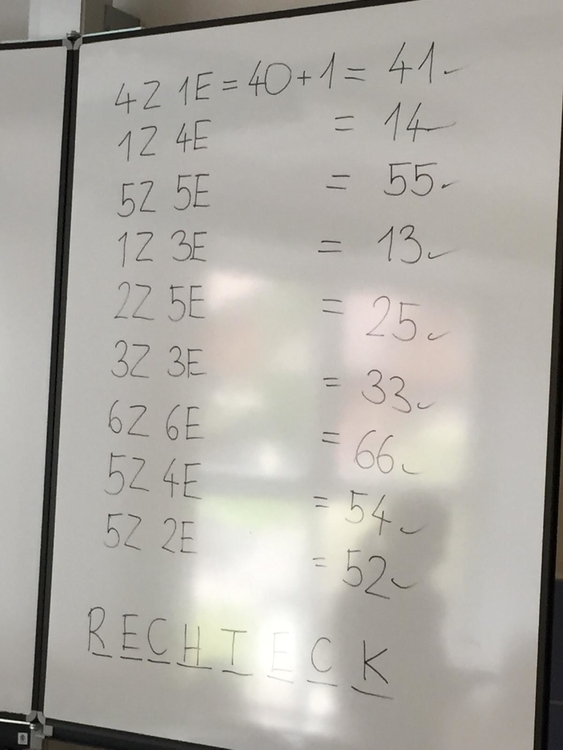 4Z 1E = 40 + 1 = 41
1Z 4E = 14
5Z 5E = 55
1Z 3E = 13
2Z 5E = 25
3Z 3E = 33
6Z 6E = 66
5Z 4E = 54
5Z 2E = 52
RECHTECK